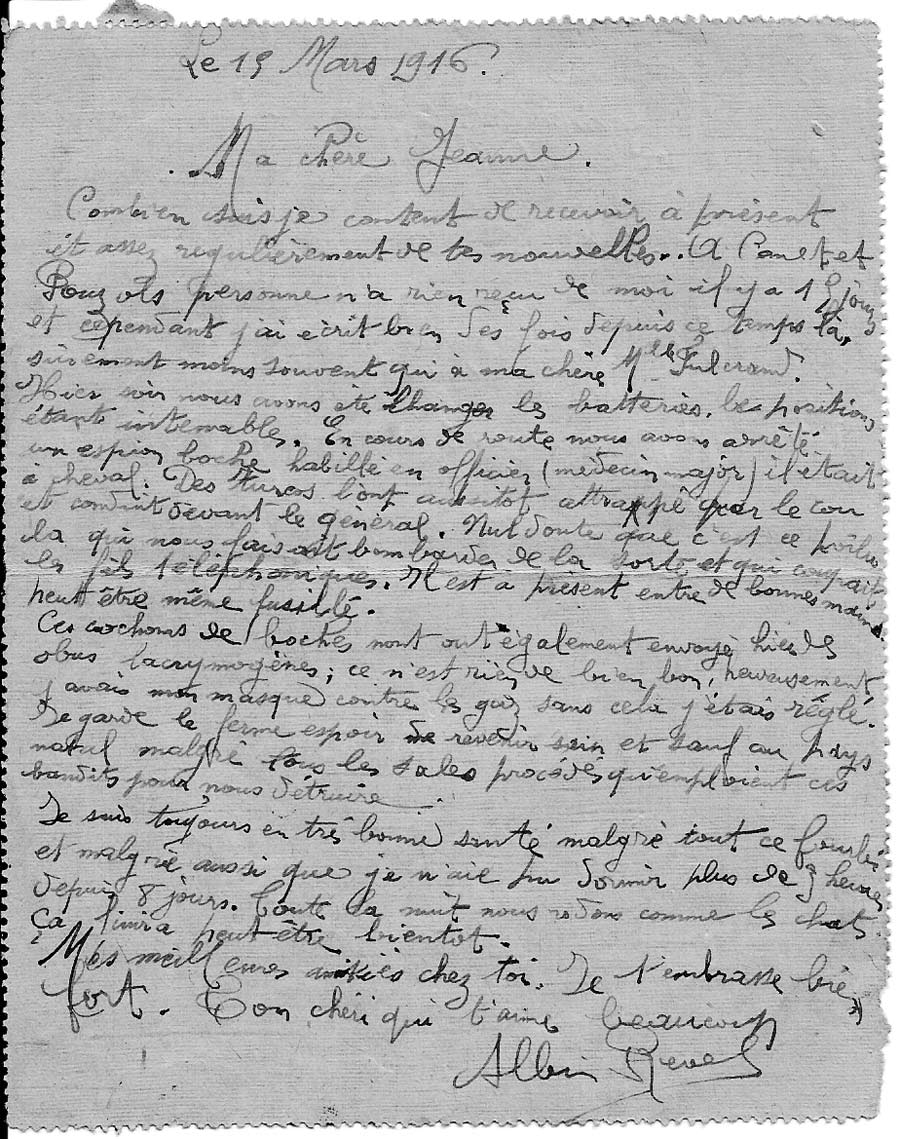 Le 19 Mars 1916.
Ma chère Jeanne.
Combien suis je content de recevoir à présent
et assez regulièrement de tes nouvelles.. A Canet et
Pouzols personne n'a rien reçu de moi il y a 15 jours
et cependant j'ai ecrit bien des fois depuis ce temps là,
surement moins souvent qu'à ma chère Melle Fulcrand.
Hier soir nous avons été changer les batteries. les positions
étant intenables. En cours de route nous avons arrêté
un espion boche habillé en officier (médecin major) il était
à cheval. Des turcos l'ont aussitot attrappé par le cou
et conduit devant le général. Nul doute que c'est ce poilu
la qui nous faisait bombarder de la sorte et qui coupait
les fils téléphoniques. Il est a present entre de bonnes mains
peut être même fusillé.
Ces cochons de boches nont ont également envoyé hier des
obus lacrymogènes; ce n'est rien de bien bon, heureusement
j'avais mon masque contre les gaz sans cela j'étais réglé.
Je garde le ferme espoir de revenir sain et sauf au pays
natal malgré tous les sales procédés qu'emploient ces
bandits pour nous détruire.
Je suis toujours en très bonne santé malgré tout ce fourbi
et malgré aussi que je n'aie pu dormir plus de 3 heures
depuis 8 jours. Toute la nuit nous rodons comme les chats.
Ça finira peut-être bientot.
Mes meilleures amitiés chez toi. Je t'embrasse bien
fort. Ton chéri qui t'aime beaucoup
Albin Revel